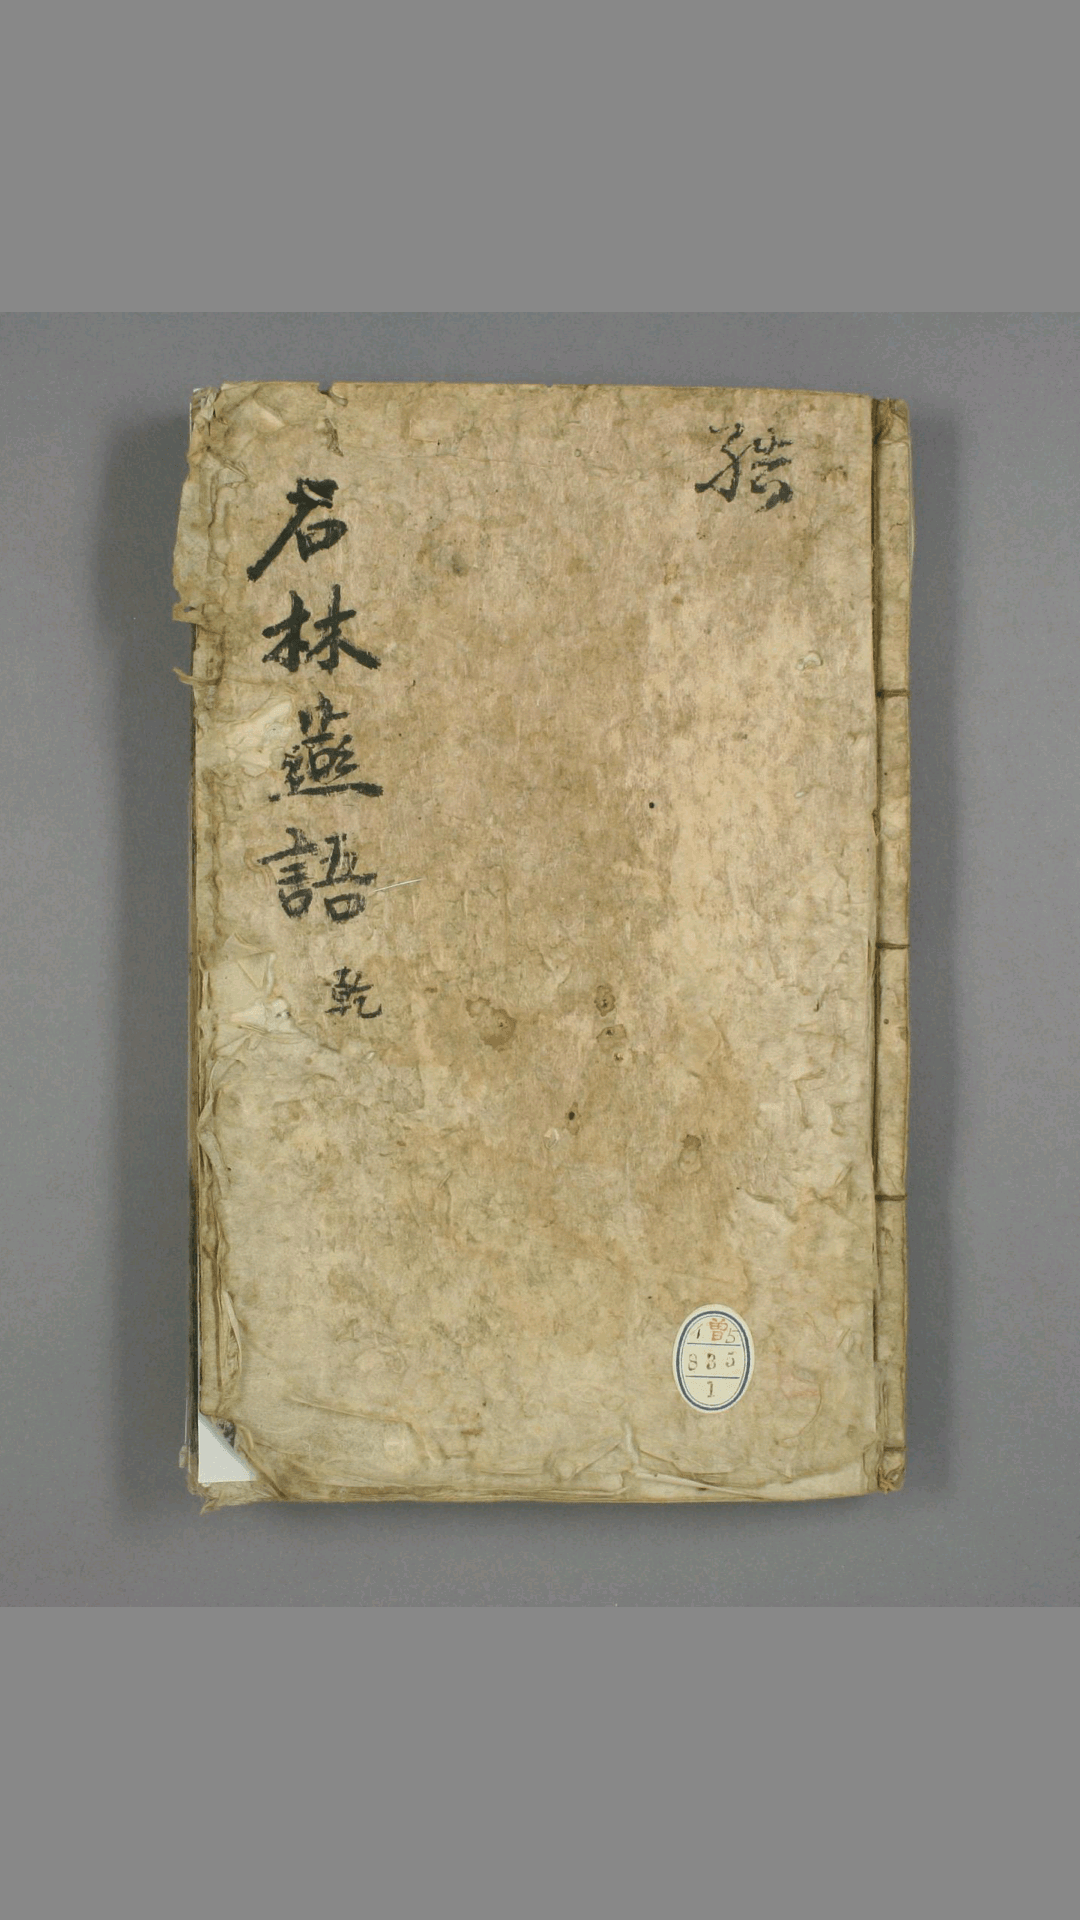 石林燕語 乾
曽
15
835
1